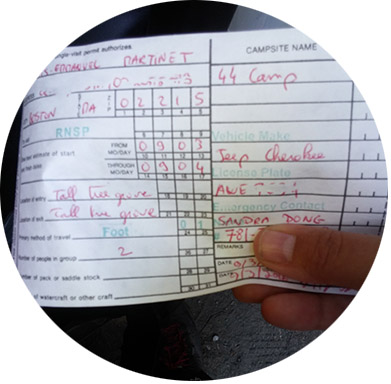 single-visit permit authorizes
EMMANUEL MARTINET
CAMPSITE NAME
44 Camp
BOSTON MA 0 2 2 1 5
RNSP
Vehicle Make
estimate of start FROM MO/DAY 0 9 0 3
Jeep Cherokee
THROUGH MO/DAY 0 9 0 4
License Plate
of entry Tall tree grove
AWE
of exit Tall tree grove
Emergency Contact
Primary method of travel Foot 0 1
SANDRA DONG
781-
Number of people in group 2
REMARKS
Number of pack or saddle stock
DATE
DATE
of watercraft or other craft